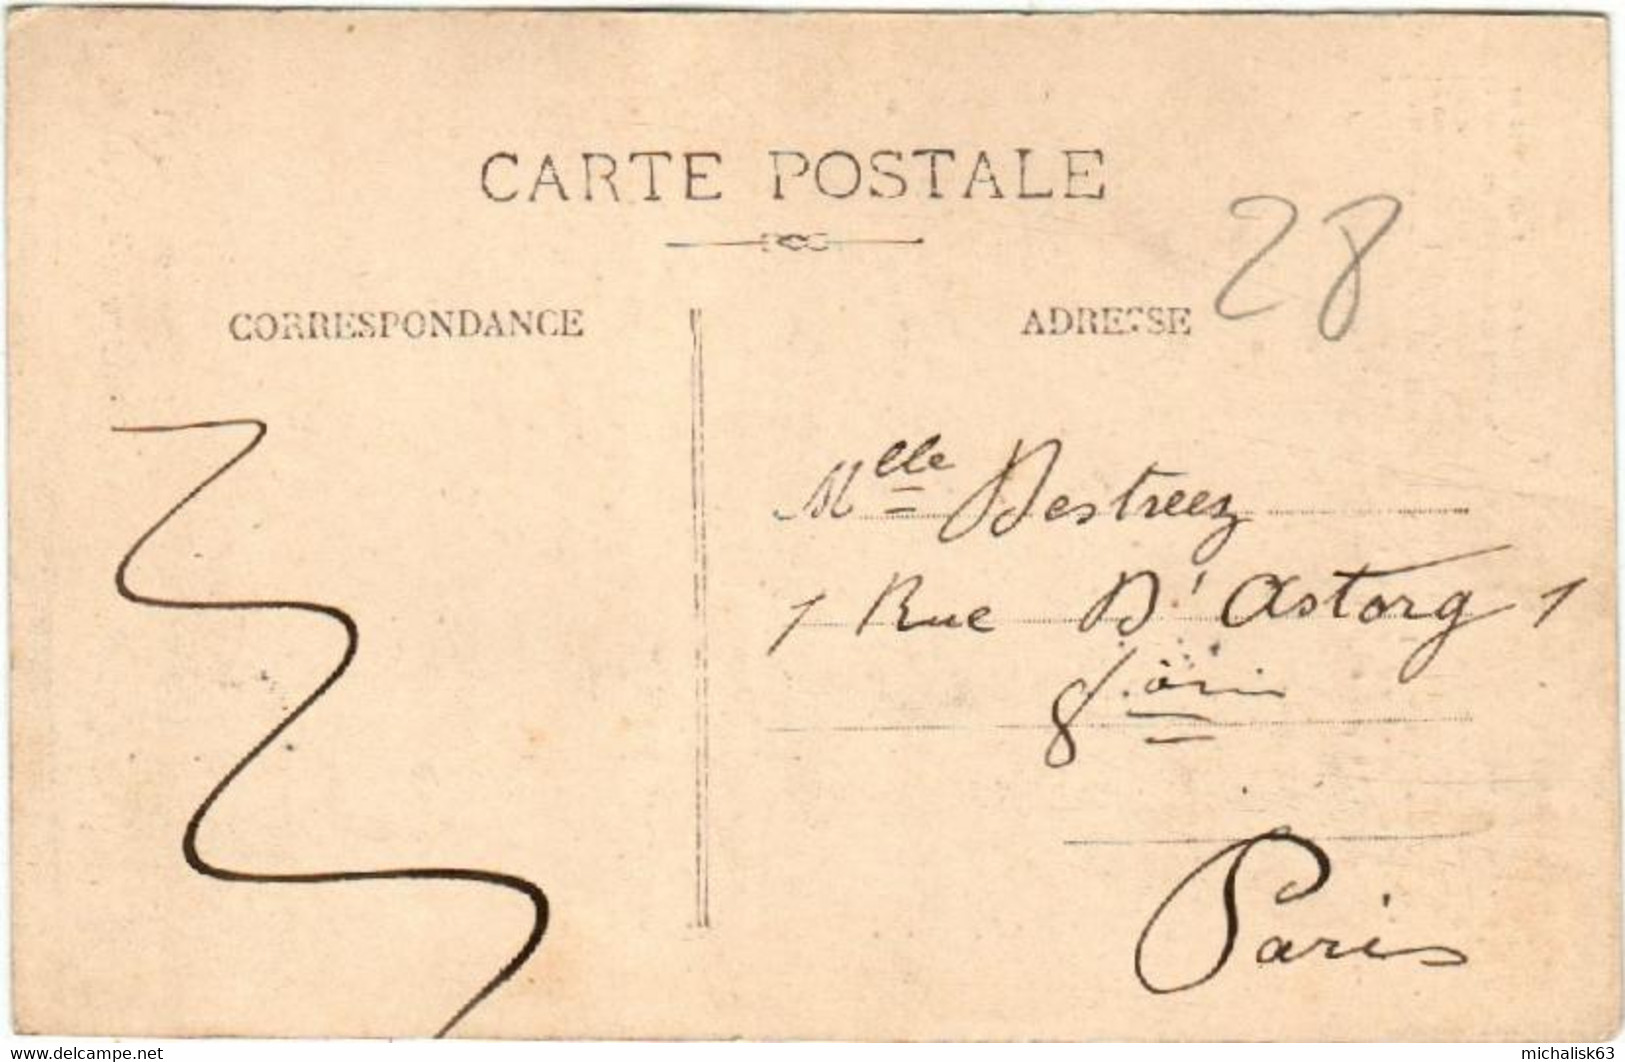 CARTE POSTALE
28
CORRESPONDANCE
ADRESSE
Mlle Destreez
1 Rue D'Astorg 1
8
Paris
www.delcampe.net
michalisk63